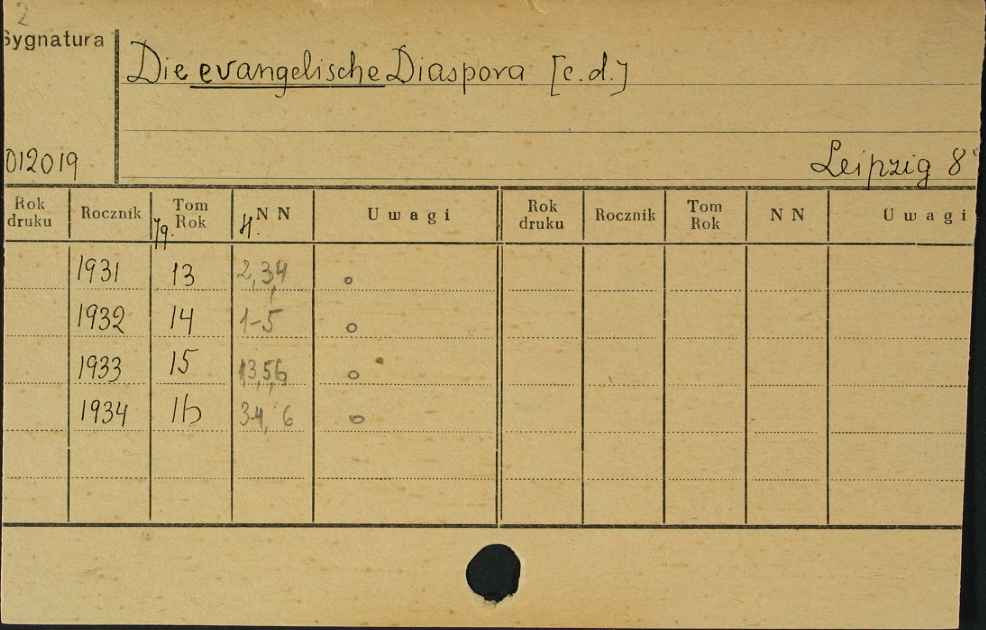 2
Sygnatura
Die evangelische Diaspora [c.d.]
012019
Leipzig 8°
Rok druku Rocznik Tom Rok Jg. H. NN Uwagi Rok druku Rocznik Tom Rok NN Uwagi
1931 13 2,3,4 o
1932 14 1-5 o
1933 15 1,3,5,6 o
1934 16 3-4, 6 o